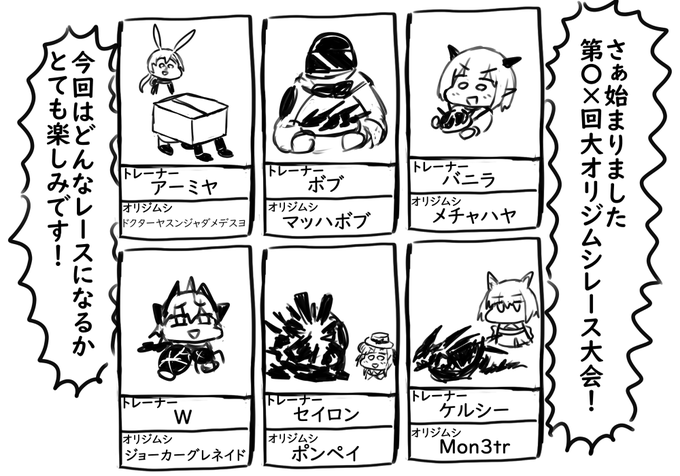 さぁ始まりました
第〇×回大オリジムシレース大会！
トレーナー
バニラ
オリジムシ
メチャハヤ
トレーナー
ボブ
オリジムシ
マッハボブ
トレーナー
アーミヤ
オリジムシ
ドクターヤスンジャダメデスヨ
トレーナー
ケルシー
オリジムシ
Mon3tr
トレーナー
セイロン
オリジムシ
ポンペイ
トレーナー
W
オリジムシ
ジョーカーグレネイド
今回はどんなレースになるか
とても楽しみです！